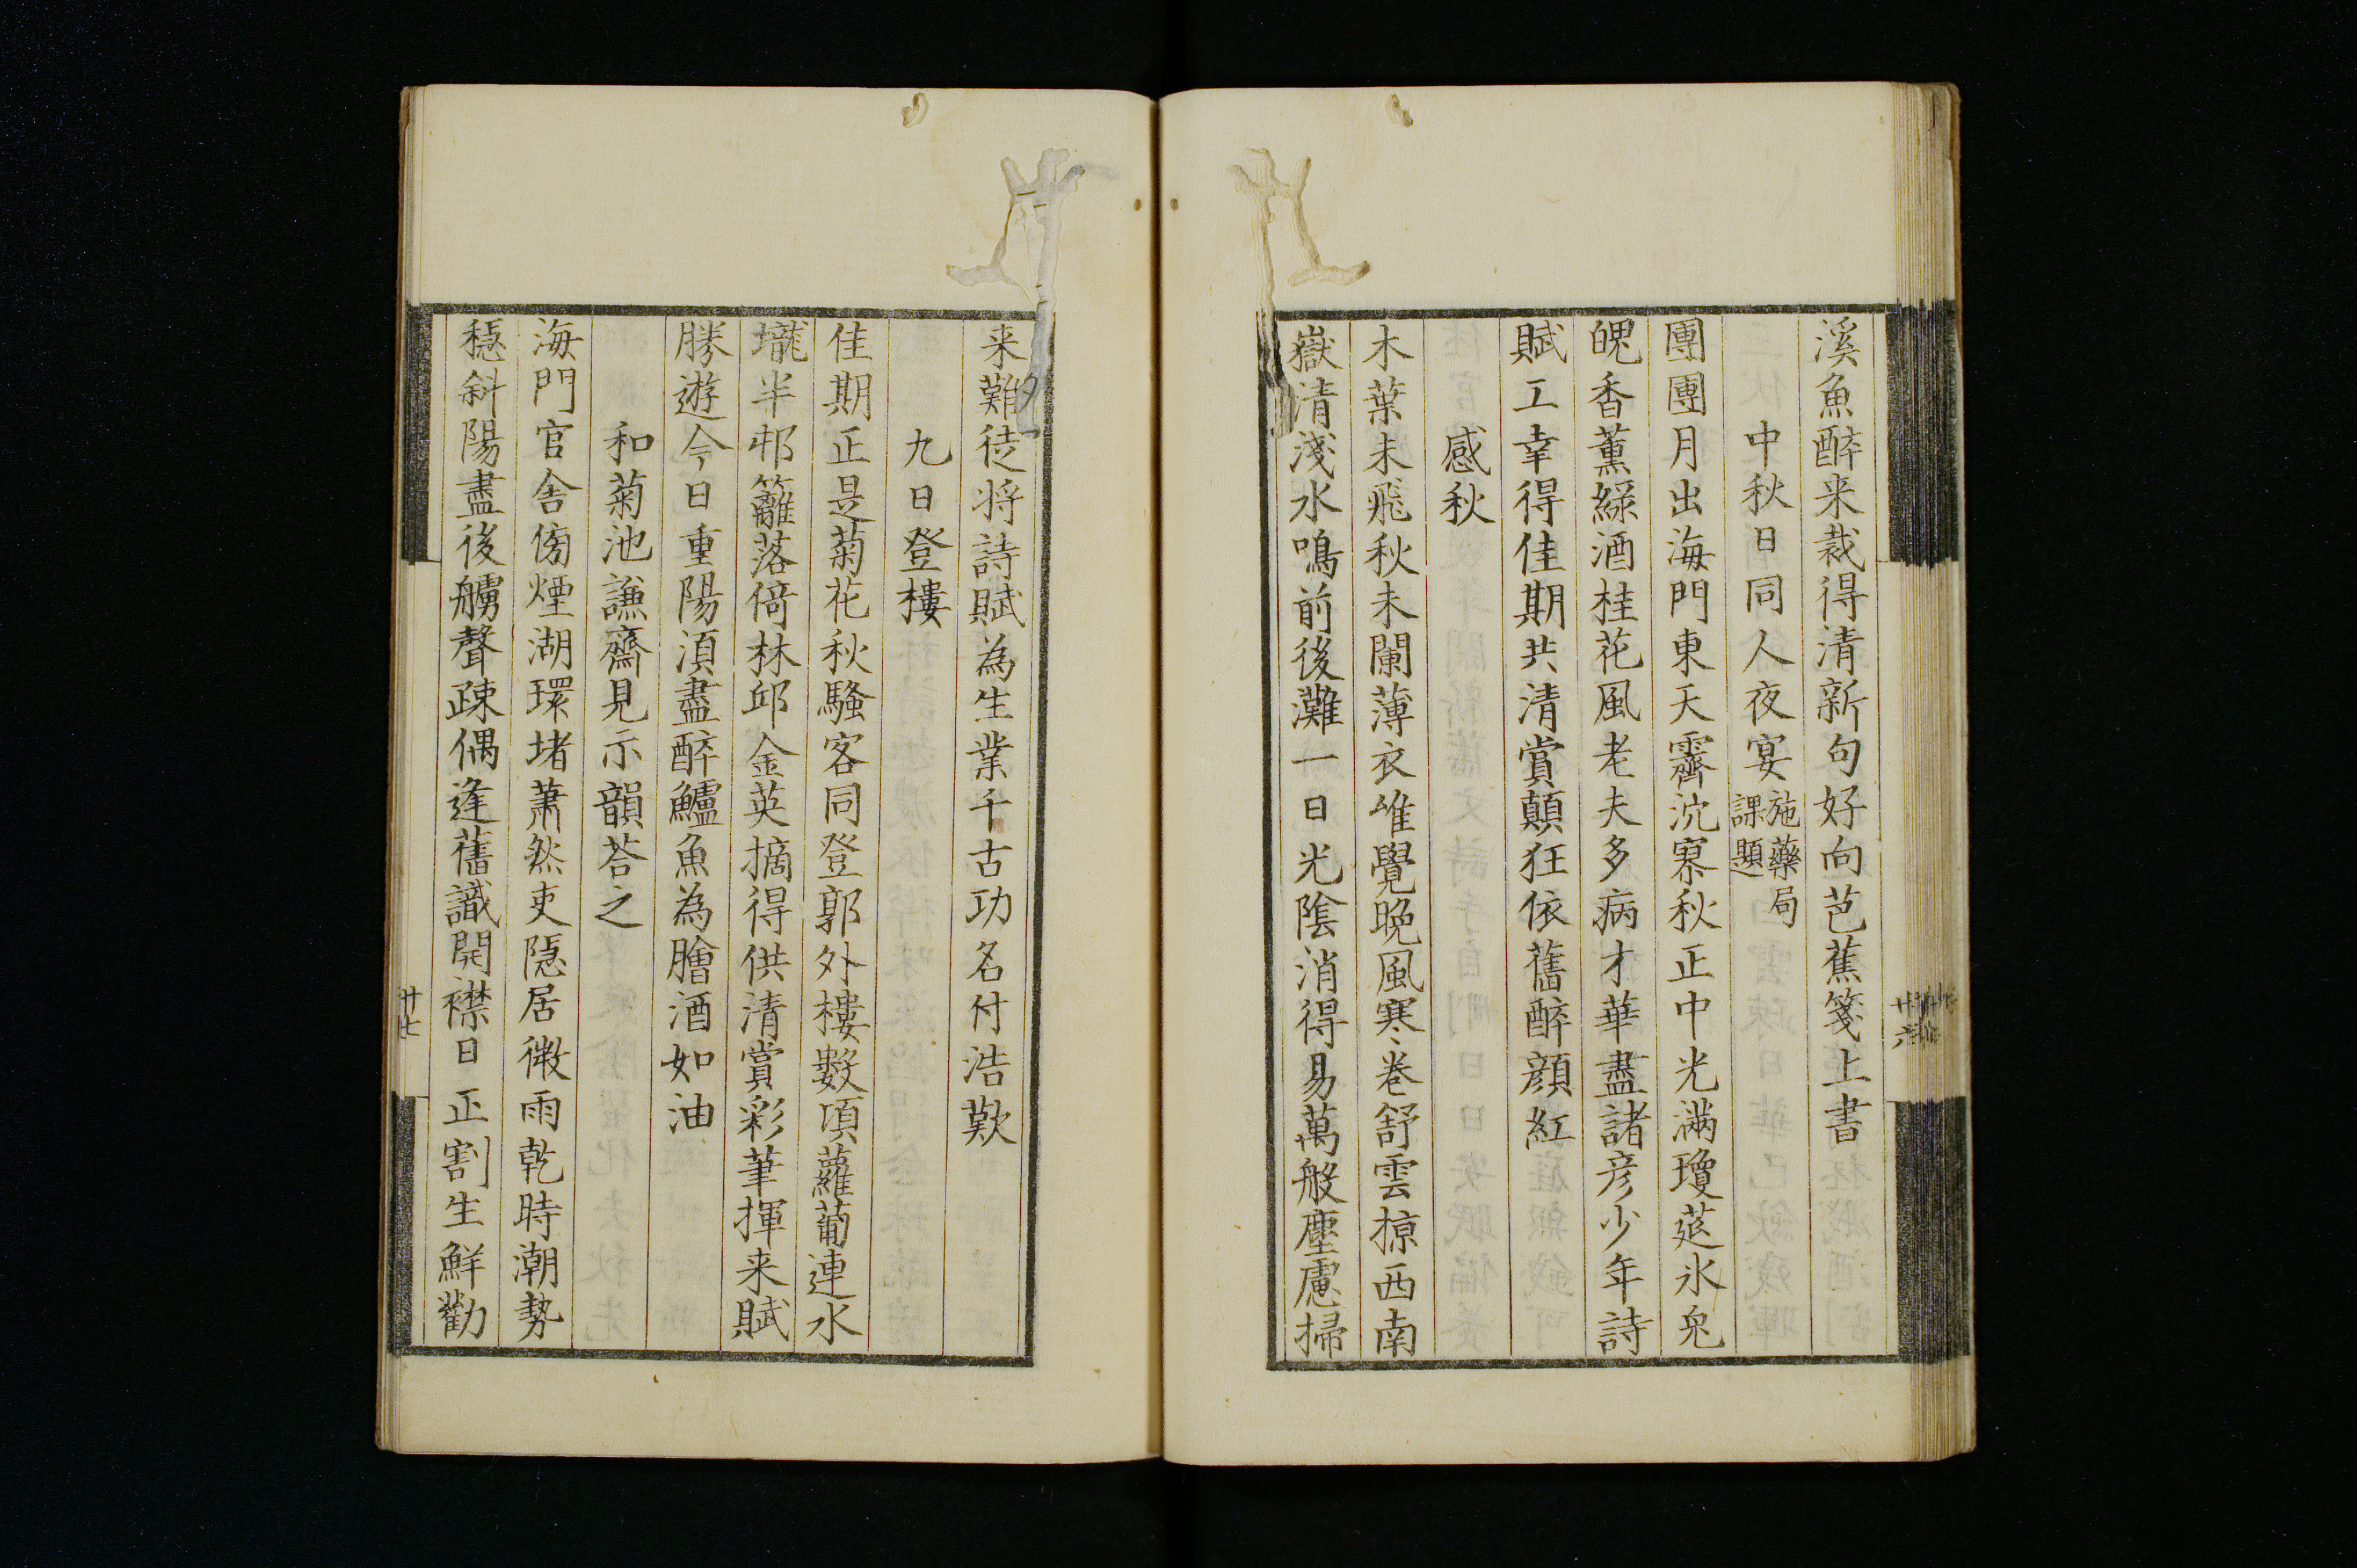 溪魚醉来裁得清新句好向芭蕉箋上書
中秋日同人夜宴施藥局課題
團團月出海門東天霽沈寥秋正中光滿瓊莚氷皃
皅香薰綠酒桂花風老夫多病才華盡諸彦少年詩
賦工幸得佳期共清賞顛狂依舊醉顏紅
感秋
木葉未飛秋未闌薄衣唯覺晚風寒巻舒雲掠西南
嶽清淺水鳴前後灘一日光陰消得易萬般塵慮掃
来難徒将詩賦為生業千古功名付浩歎
九日登樓
佳期正是菊花秋騷客同登郭外樓數項蘿蔔連水
壠半邨籬落倚林邱金英摘得供清賞彩筆揮来賦
勝遊今日重陽須盡醉鱸魚為膾酒如油
和菊池謙齋見示韻荅之
海門官舍傍煙湖環堵蕭然吏隠居微雨乾時潮勢
穏斜陽盡後艣聲疎偶逢舊識開襟日正割生鮮勸
廿七